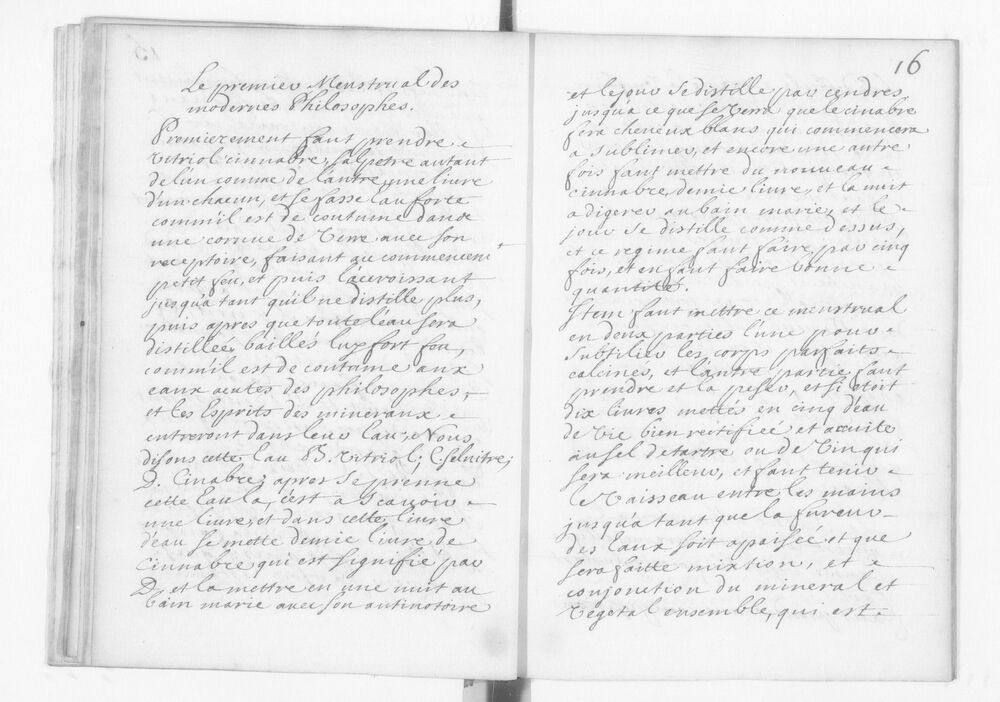 Le premier Menstrual des
modernes Philosophes.
Premierement faut prendre
vitriol cinnabre, salpetre autant
de l'un comme de l'autre, une livre
d'un chacun, et se fasse l'au forte
comm'il est de coutume dans
une cornue de verre avec son
receptoire, faisant au commencem
petit feu, et puis l'acroissant
jusqu'a tant qu'il ne distille plus,
puis apres que toute l'eau sera
distillée baillés luy fort feu,
comm'il est de coutume aux
eaux acutes des philosophes,
et les Esprits des mineraux
entreront dans leur Eau, Nous
disons cette Eau B. vitriol; C. selnitre;
D. Cinabre; apres se prenne
cette Eau la, c'est a scavoir
une livre, et dans cette livre
d'eau se mette demie livre de
Cinnabre qui est signifié par
D. et la mettre en une nuit au
bain marie avec son antinotoire
16
et le jour se distille par cendres
jusqu'a ce que se verra que le cinabre
fera cheveux blans qui commencera
a sublimer, et encore une autre
fois faut mettre du nouveau
cinnabre demie livre, et la nuit
a digerer au bain marie, et le
jour se distille comme dessus,
et ce regime faut faire par cinq
fois, et en faut faire bonne
quantité.
Item faut mettre ce menstrual
en deux parties l'une pour
subtilier les corps parfaits
calcines, et l'autre partie faut
prendre et la peser, et si etoit
dix livres mettés en cinq d'eau
de vie bien reitifieé et acuite
au sel de tartre ou de vin qui
sera meilleur, et faut tenir
le vaisseau entre les mains
jusqu'a tant que la fureur
des Eaux soit apaiseé et que
sera faitte mixtion, et
conjonction du mineral et
vegetal ensemble, qui est